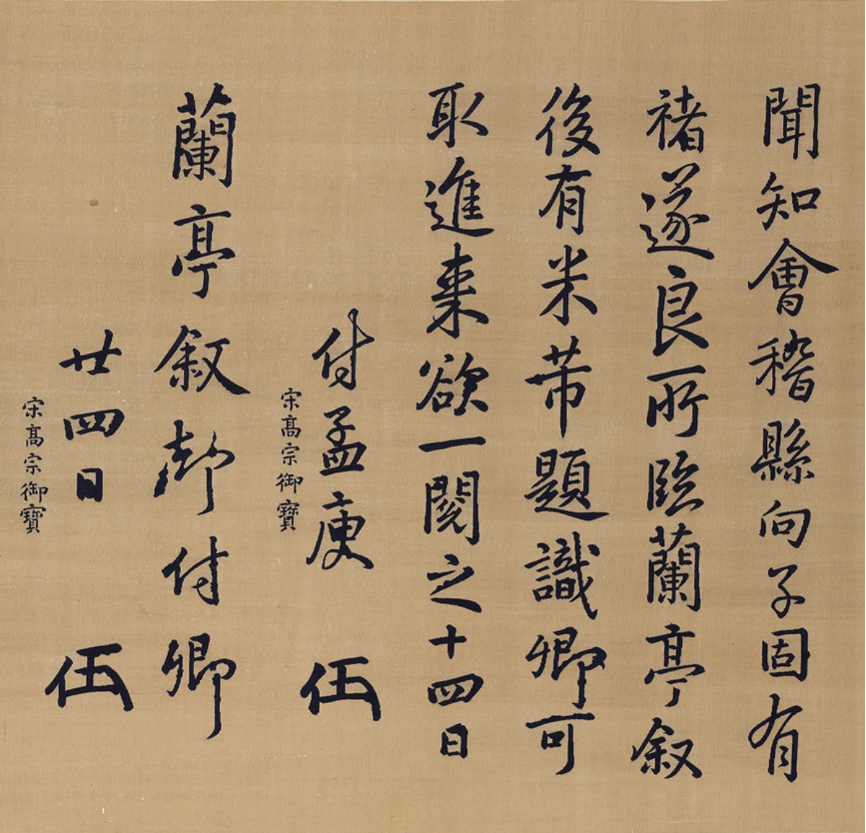 聞知會稽縣向子固有
禇遂良所臨蘭亭叙
後有米芾題識卿可
取進来欲一閱之十四日
付孟庾 伍
宋高宗御寶
蘭亭叙却付卿
廿四日 伍
宋高宗御寶